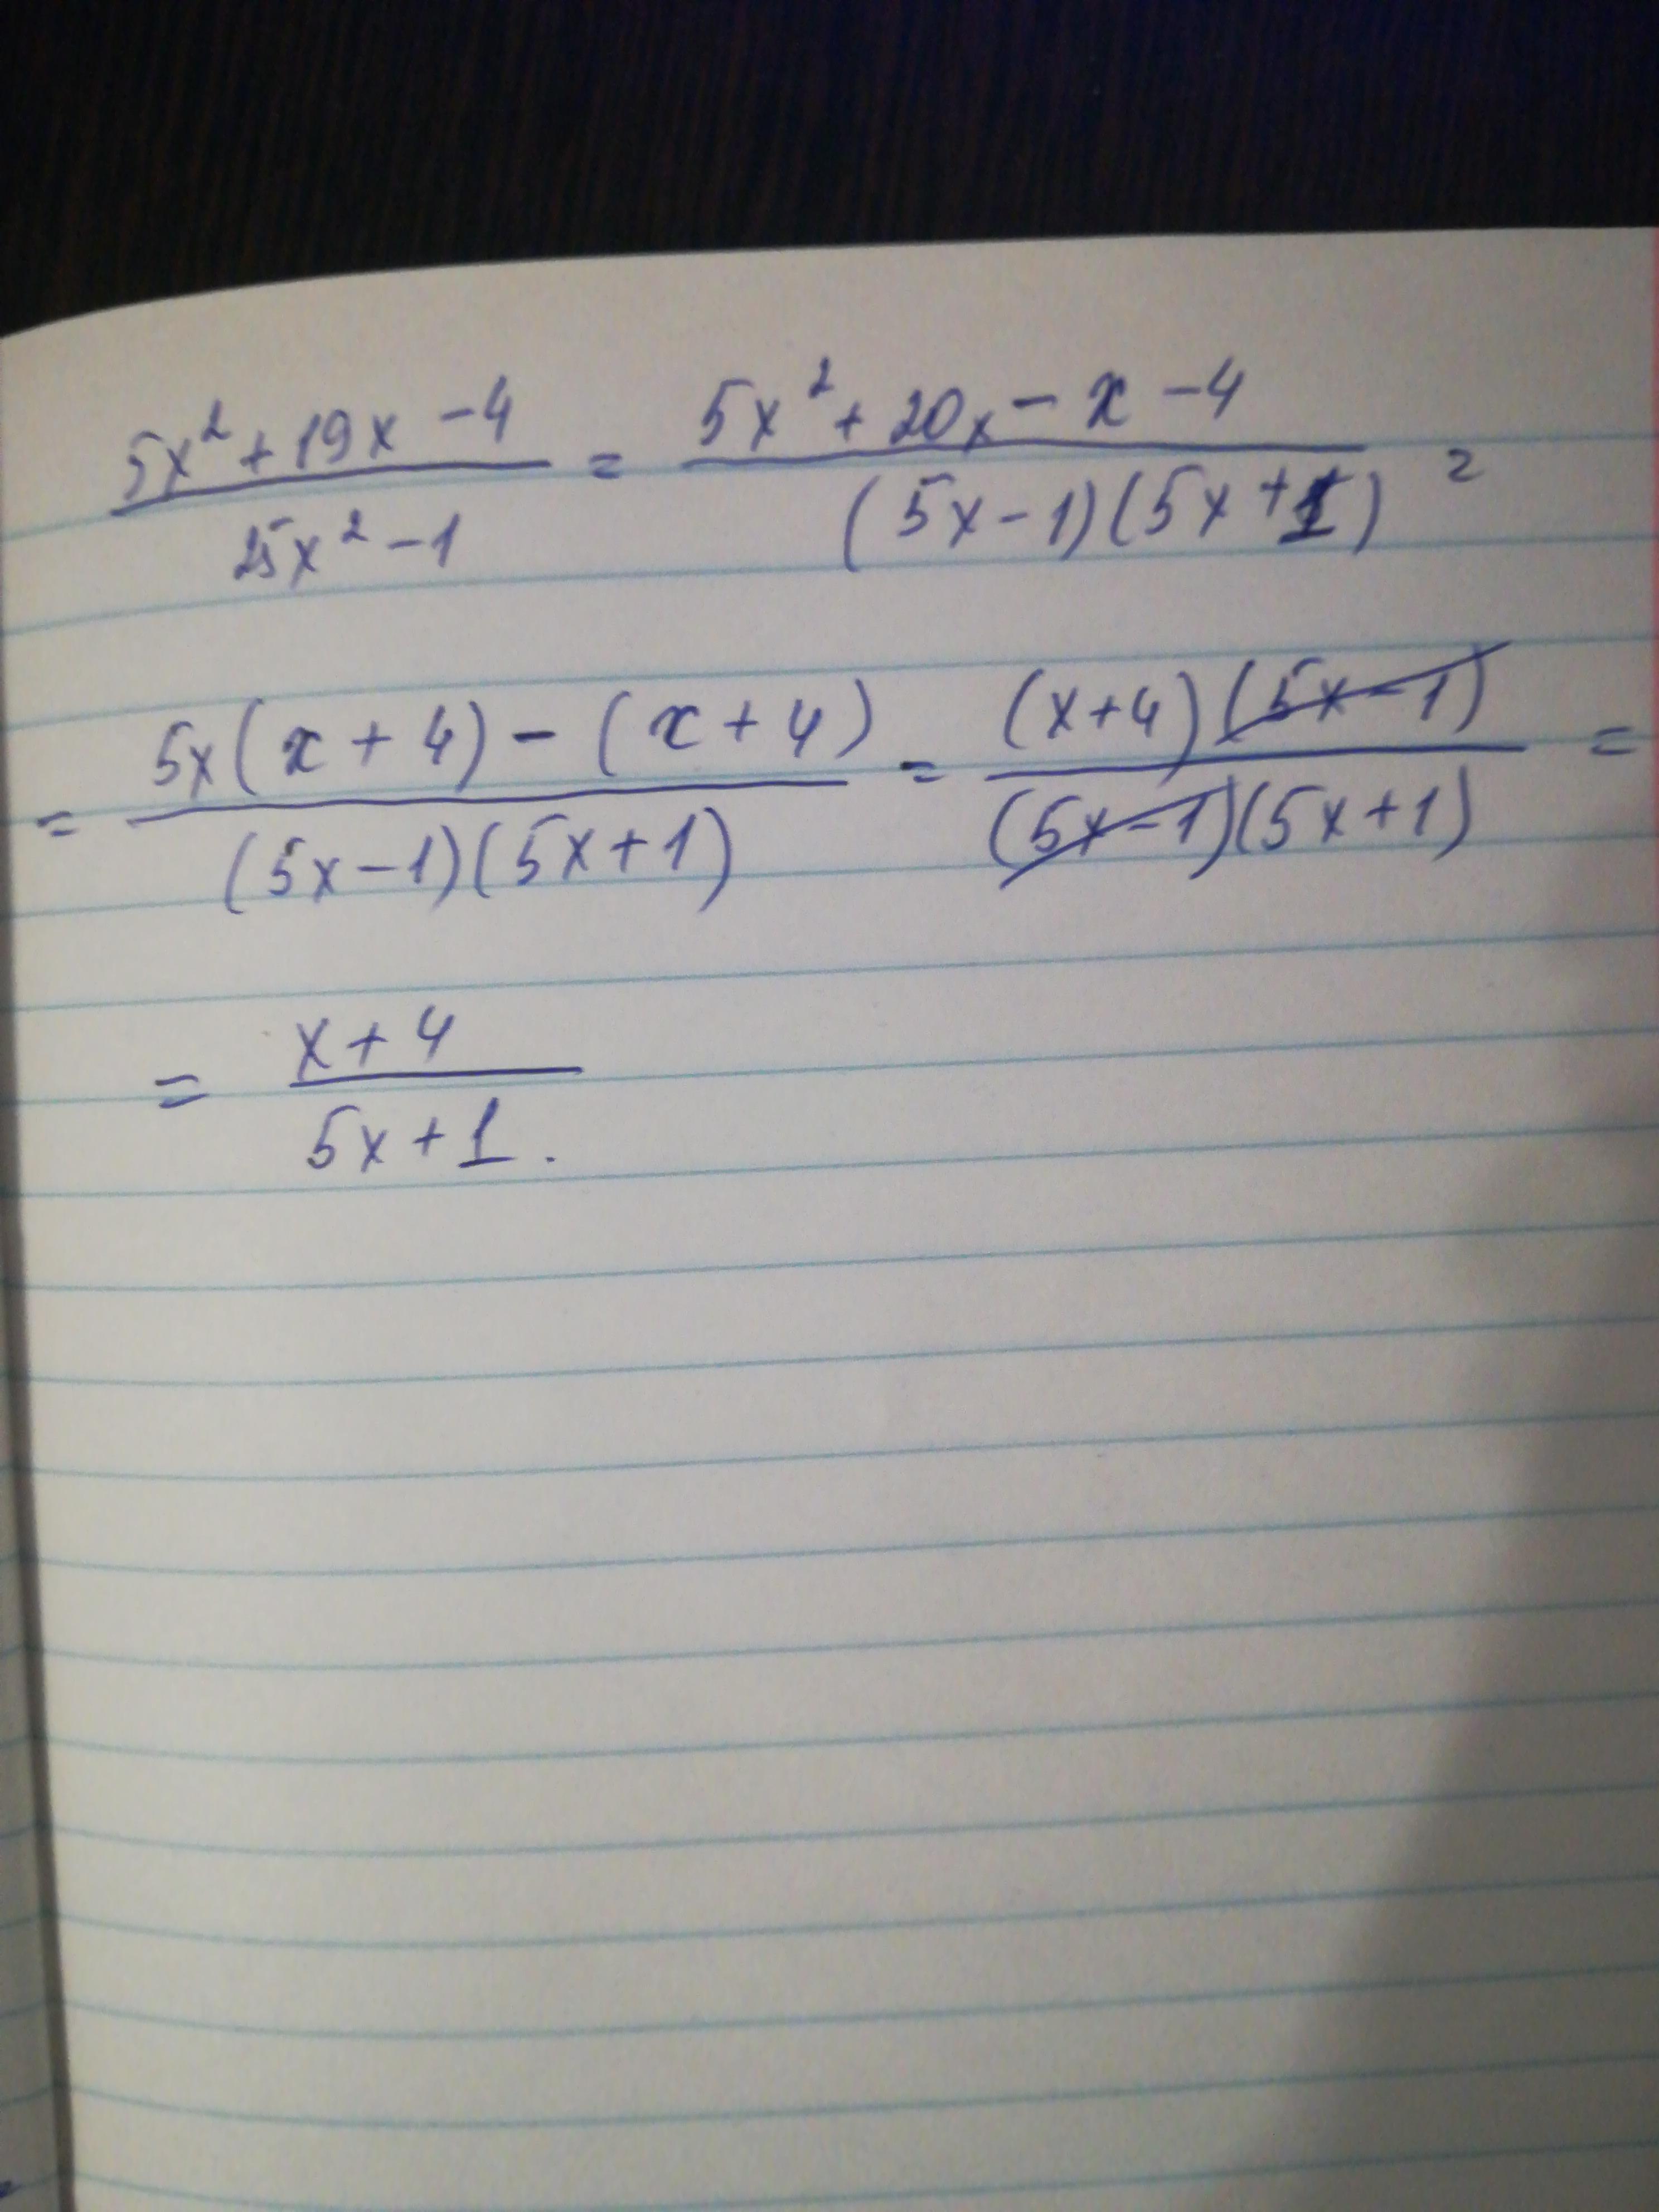 (5x² + 19x - 4)/(25x² - 1) = (5x² + 20x - x - 4)/((5x - 1)(5x + 1)) =
= (5x(x + 4) - (x + 4))/((5x - 1)(5x + 1)) = ((x + 4)(5x - 1))/((5x - 1)(5x + 1)) =
= (x + 4)/(5x + 1).